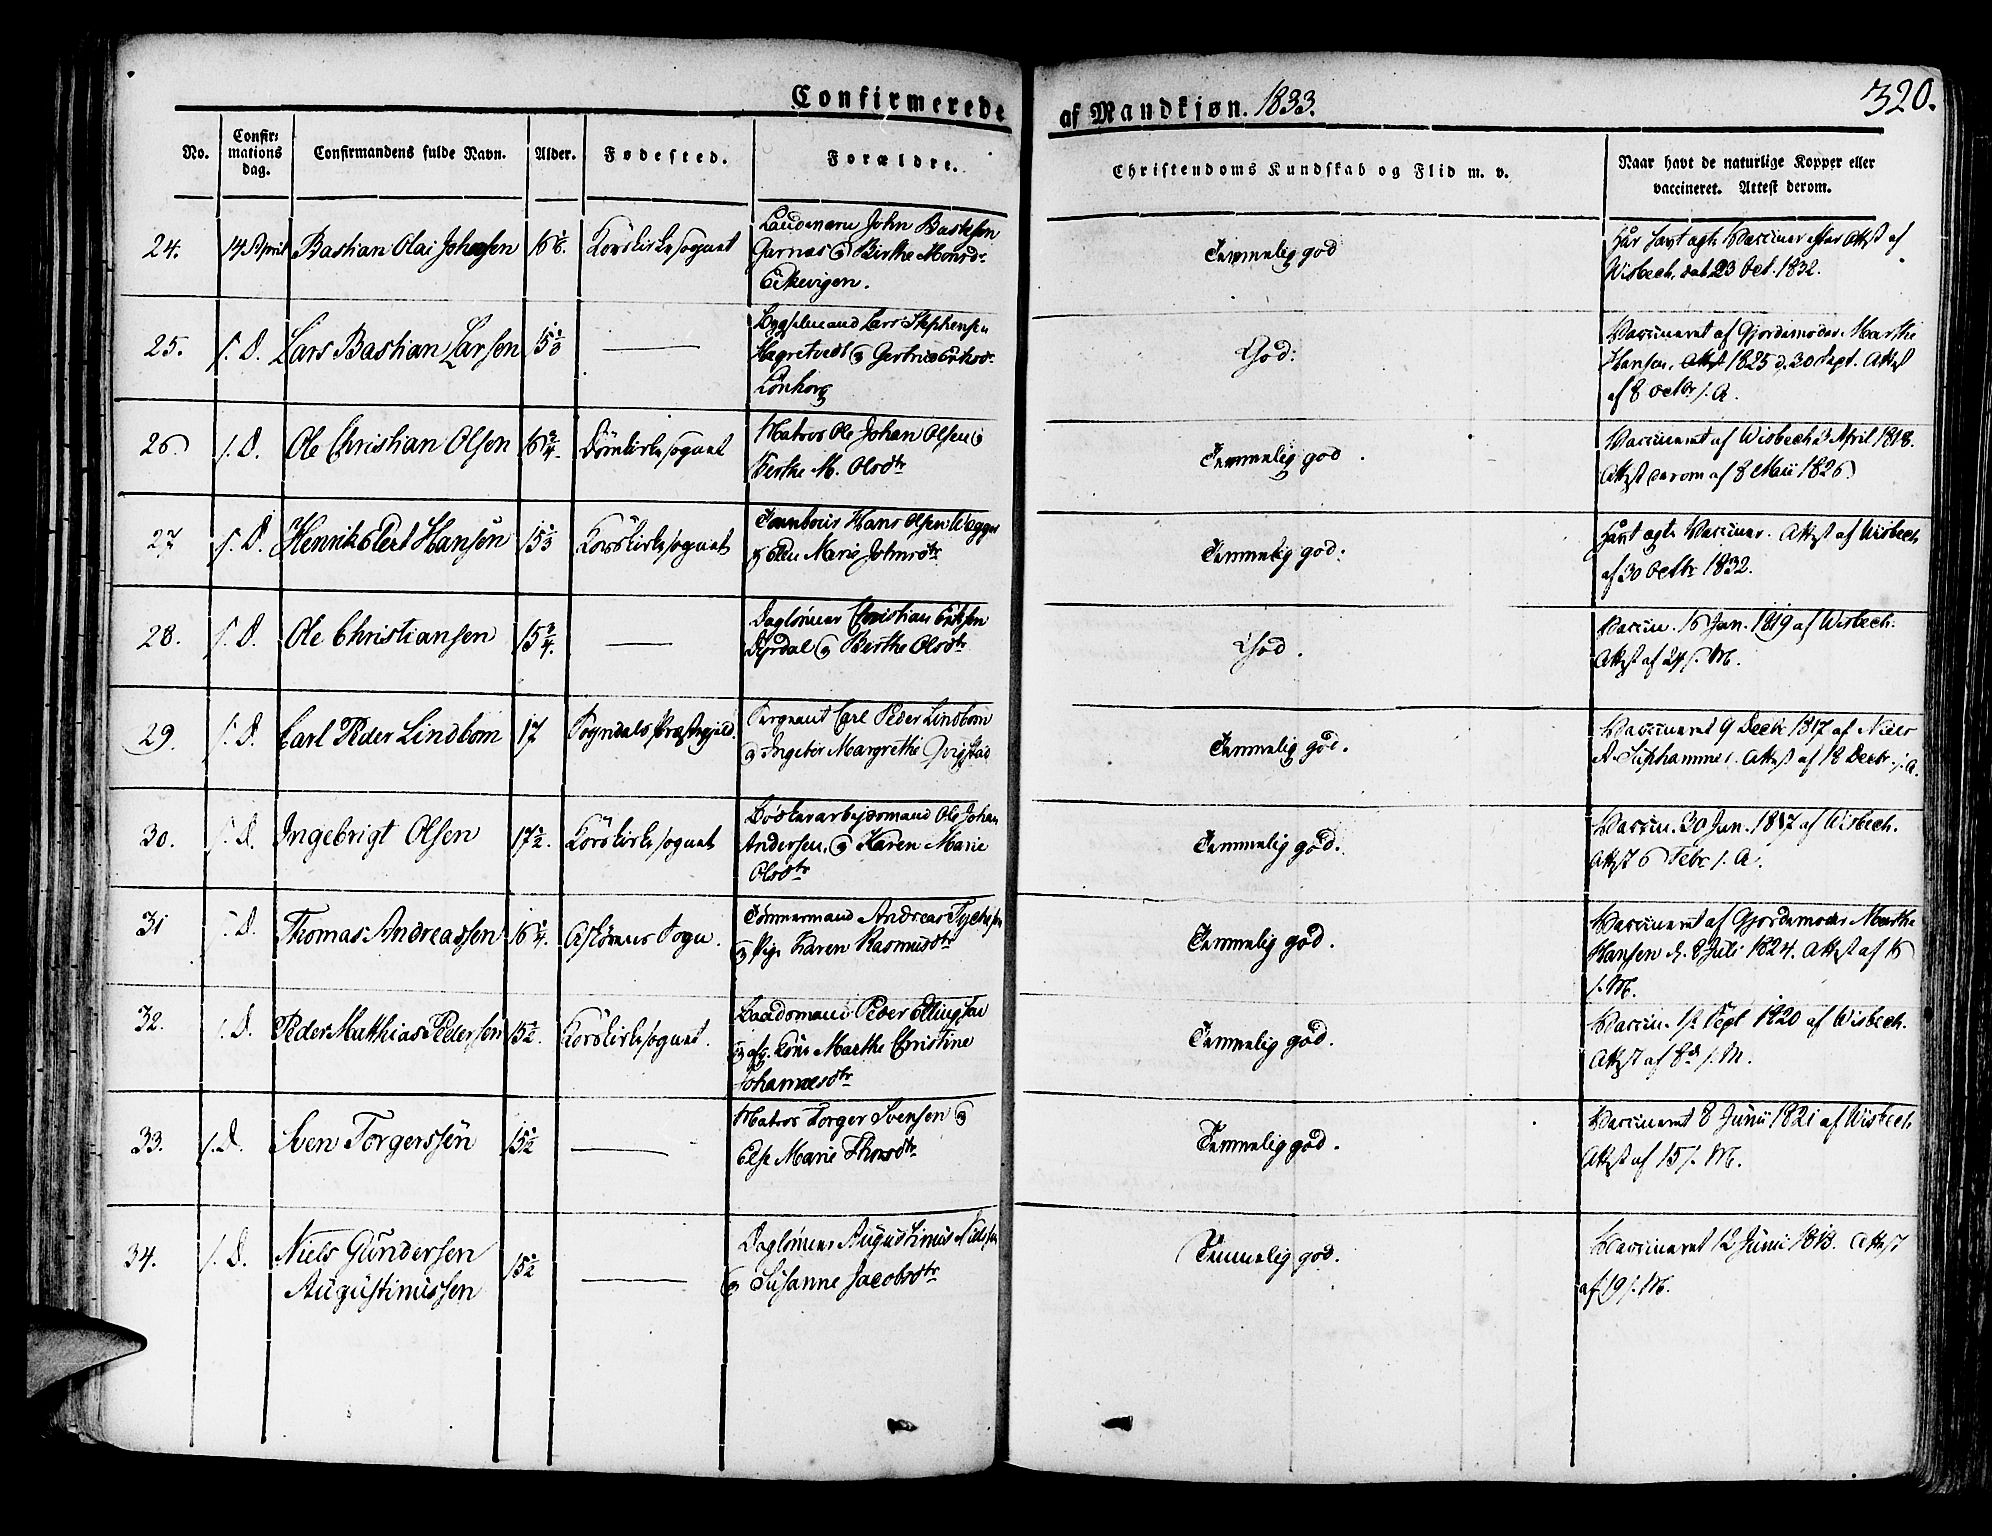 Confirmerede af Mandkjøn. 1833.
320.
No.
Confir=
mations
dag.
Confirmandens fulde Navn.
Alder.
Fødested.
Forældre.
Christendoms Kundskab og Flid m. v.
Naar havt de naturlige Kopper eller
vaccineret. Attest derom.
24. 14 April Bastian Olai Johnsen 16 Korskirkesognet
John
Garnas og Birthe Monsdr
Eikevigen.
Temmelig god
Har havt ægte Vacciner efter Attest af
Wisbech, dat. 23 Oct. 1832.
25. s. D. Lars Bastian Larsen 15 ———
Lars Stephensen
og Gertrud
God:
Vaccineret af Gjordemoder Marthe
Hansen, 1825 d. 30 Sept. Attest
af 8 Octbr s. A.
26 s. D. Ole Christian Olsen 16 3/4 Domkirkesognet
Matros Ole Johan Olsen og
Berthe M. Olsdtr
Temmelig god.
Vaccineret af Wisbech 3 April 1818.
Attest derom af 8 Maii 1826
27 s. D. Henrik Elert Hansen 15 Korskirkesognet
Hans Olsen
og Marie Johnsdtr
Temmelig god:
Havt ægte Vacciner. Attest af Wisbech
af 30 Octbr 1832.
28. s. D. Ole Christiansen 15 3/4. ———
Dagløner Christian
og Birthe Olsdtr
God.
Vaccin. 16 Jan. 1819 af Wisbech.
Attest af 24 s. M.
29. s. D. Carl Peder Lindbom 17 Sogndals Præstegjeld.
Sergeant Carl Peder Lindbom
og Ingebor Margrethe
Temmelig god.
Vaccineret 9 Decbr 1817 af Niels
Attest af 18 Decbr s. A.
30. s. D. Ingebrigt Olsen 17 1/2. Korskirkesognet
Ole Johan
Andersen, og Karen Marie
Olsdtr
Temmelig god.
Vaccin. 30 Jan. 1817 af Wisbech.
Attest 6 Febr s. A.
31 s. D. Thomas Andreassen 16 1/4. Sogn.
Tømmermand Andreas
og Pige Karen Rasmusdtr
Temmelig god.
Vaccineret af Gjordemoder Marthe
Hansen d. 8 Juli 1824. Attest af 16
s. M.
32. s. D. Peder Matthias Pedersen 15 1/2. Korskirkesognet.
Peder
og afg. Kone Marthe Christine
Johannesdtr
Temmelig god.
Vaccin. Sept 1820 af Wisbech.
Attest af 8de s. M.
33. s. D. Sven Torgerssen 15 1/2 ———
Matros Torger Svensen og
Else Marie Thorsdtr
Temmelig god.
Vaccineret 8 Junii 1821 af Wisbech
Attest af 15 s. M.
34. s. D. Niels Gundersen
Augustinussen
15 1/2 ———
Dagløner Augustinus Nielsen
og Susanne Jacobsdtr
Temmelig god.
Vaccineret 12 Junii 1818. Attest
af 19 s. M.